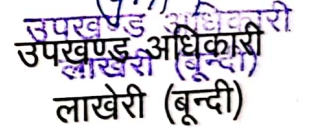 उपखण्ड अधिकारी
लाखेरी (बून्दी)
उपखण्ड अधिकारी
लाखेरी (बून्दी)